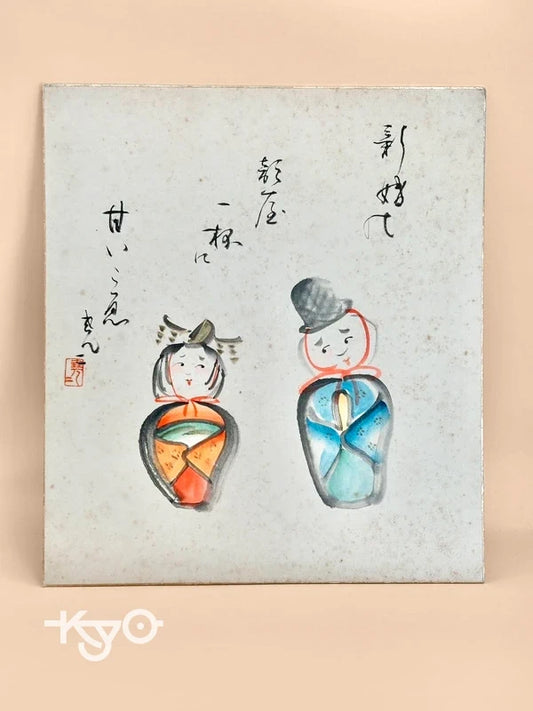 新婚の
部屋
一杯に
甘いこゑ
KYO